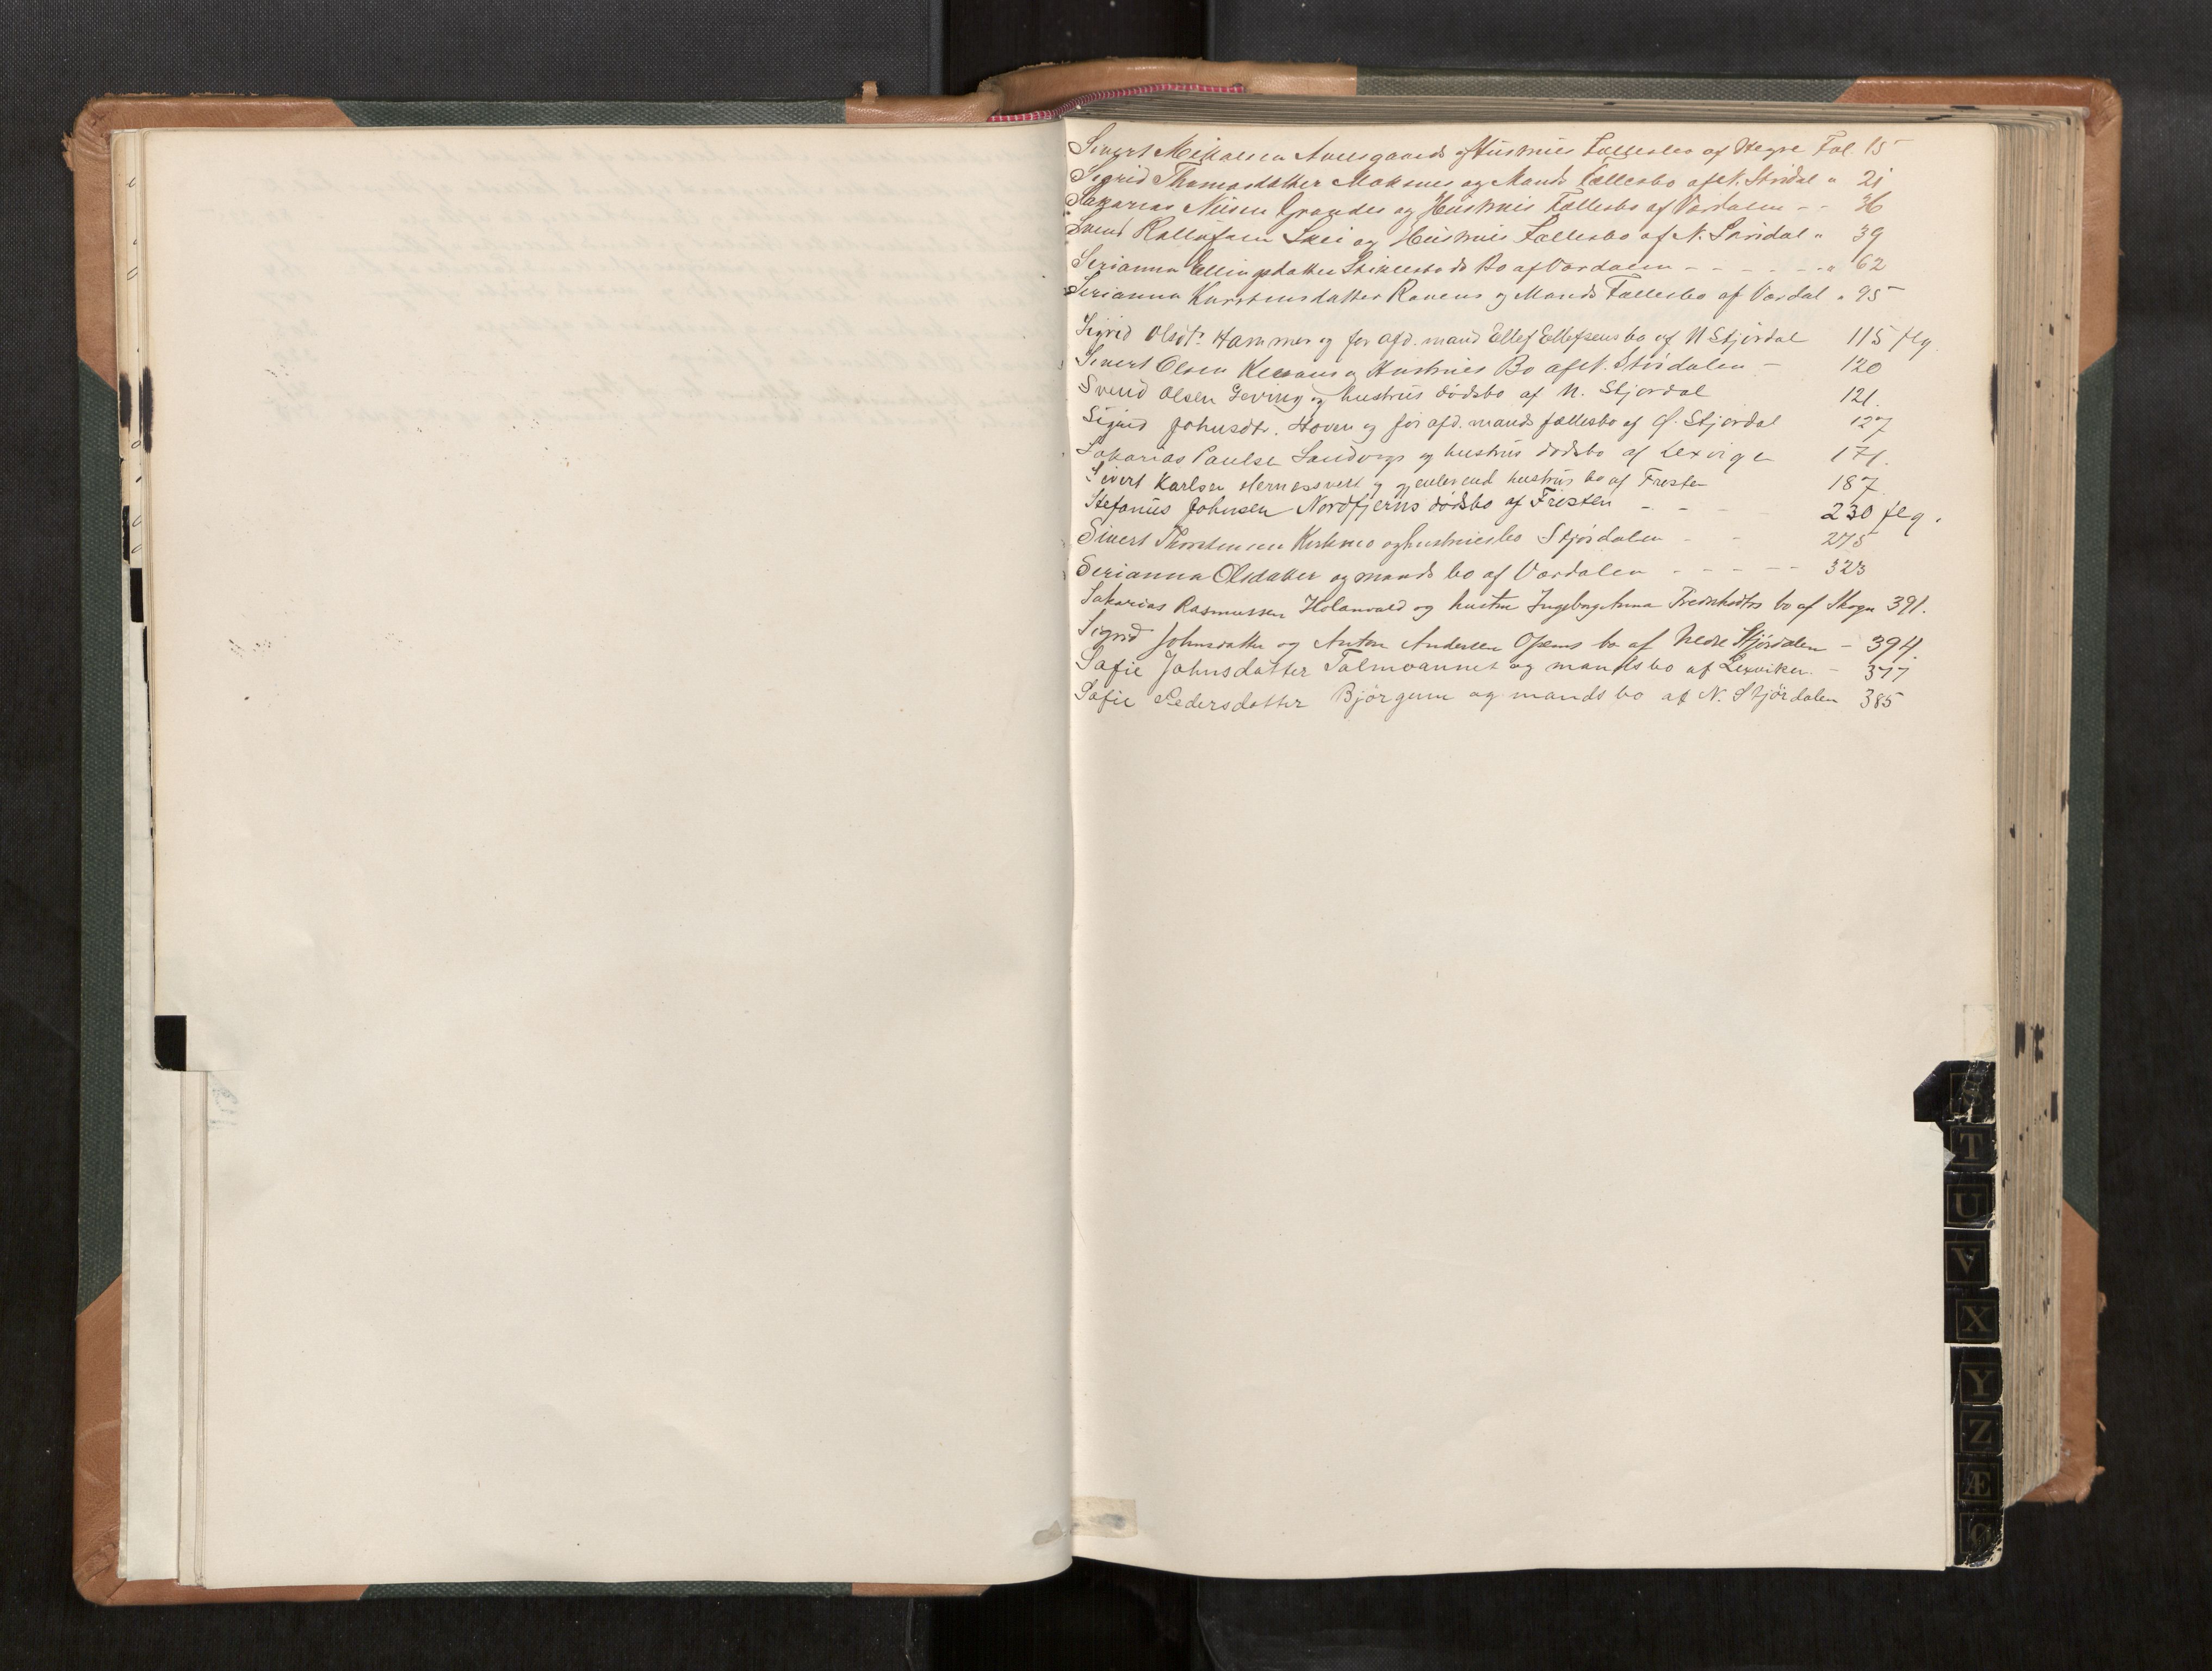 Sivert Mikalsen Avelsgaards og Hustrues Fællesbo af Hegre Fol. 15
Sigrid Thomasdatter Moksnes og Mands Fællesbo af N. Strdal " 21
Sakarias Nilsen Grandes og Hustrues Fællesbo af Værdalen - - 36
Svend Rollefsen Skei og Hustrues Fællesbo af N. Strdal " 39
Serianna Ellingsdatter Stiklestads Bo af Værdalen - - - - - " 62
Serianna Karstensdatter og Mands Fællesbo af Værdal " 95
Sigrid Olsdtr Hammer og før afd. mand Ellef Ellefsens bo af N Stjørdal 115 flg
Sivert Olsen og Hustrues Bo af N. Stjørdalen - 120
Svend Olsen Geving og hustrus dødsbo af N. Stjørdal 121.
Sigrid Johnsdtr. Hoven og før afd. mands fællesbo af Ø. Stjørdal 127
Sakarias Paulsen Sandvigs og hustrus dødsbo af Lexvigen 171.
Sivert Karlsen og gjenlevend hustrus bo af Frosten 187.
Stefanus Johnsen Nordfjerns dødsbo af Frosten - - - 230 flg.
Sivert Thorstensen Kirkmo og hustruesbo Stjørdalen - - 275
Serianna Olsdatter og mands bo af Værdalen - - - - - 323
Sakarias Rasmussen Holamvald og hustru Ingeborg Anna Fredriksdtrs bo af Skogn 391.
Sigrid Johnsdatter og Anton Andersen Opems bo af Nedre Stjørdalen - 394.
Sofie Johnsdatter Talmoannet og mandsbo af Lexviken. - 377
Sofie Pedersdatter Bjørgum og mands bo af N. Stjørdalen 385
S
T
U
V
X
Y
Z
Æ
Ø